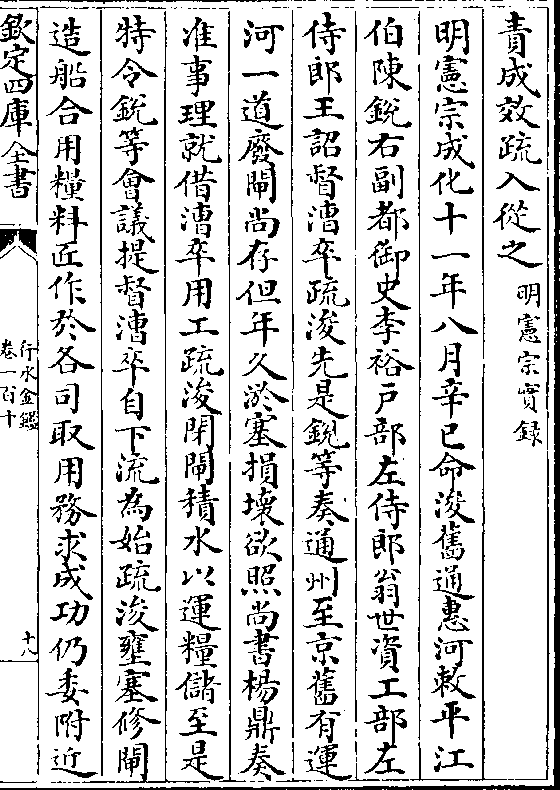 責成效疏入從之 明憲宗實録
明憲宗成化十一年八月辛巳命浚舊通惠河敕平江
伯陳銳右副都御史李裕戶部左侍郎翁世資工部左
侍郎王詔督漕卒疏浚先是銳等奏通州至京舊有運
河一道廢閘尚存但年久淤塞損壞欲照尚書楊鼎奏
准事理就借漕卒用工疏浚閉閘積水以運糧儲至是
特令銳等會議提督漕卒自下流為始疏浚壅塞修閘
造船合用糧料匠作於各司取用務求成功仍委附近
欽定四庫全書
行水金鑑
卷一百十
十八